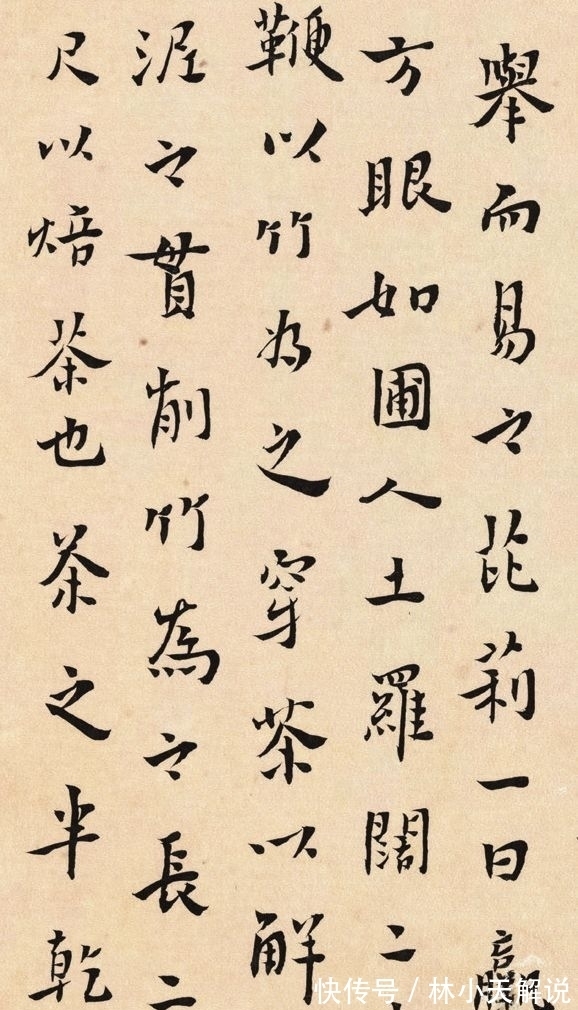 舉而易之芘莉一曰贏
方眼如圃人土羅闊二
鞭以竹為之穿茶以解
泥之貫削竹為之長二
尺以焙茶也茶之半乾
快传号/林小天解说